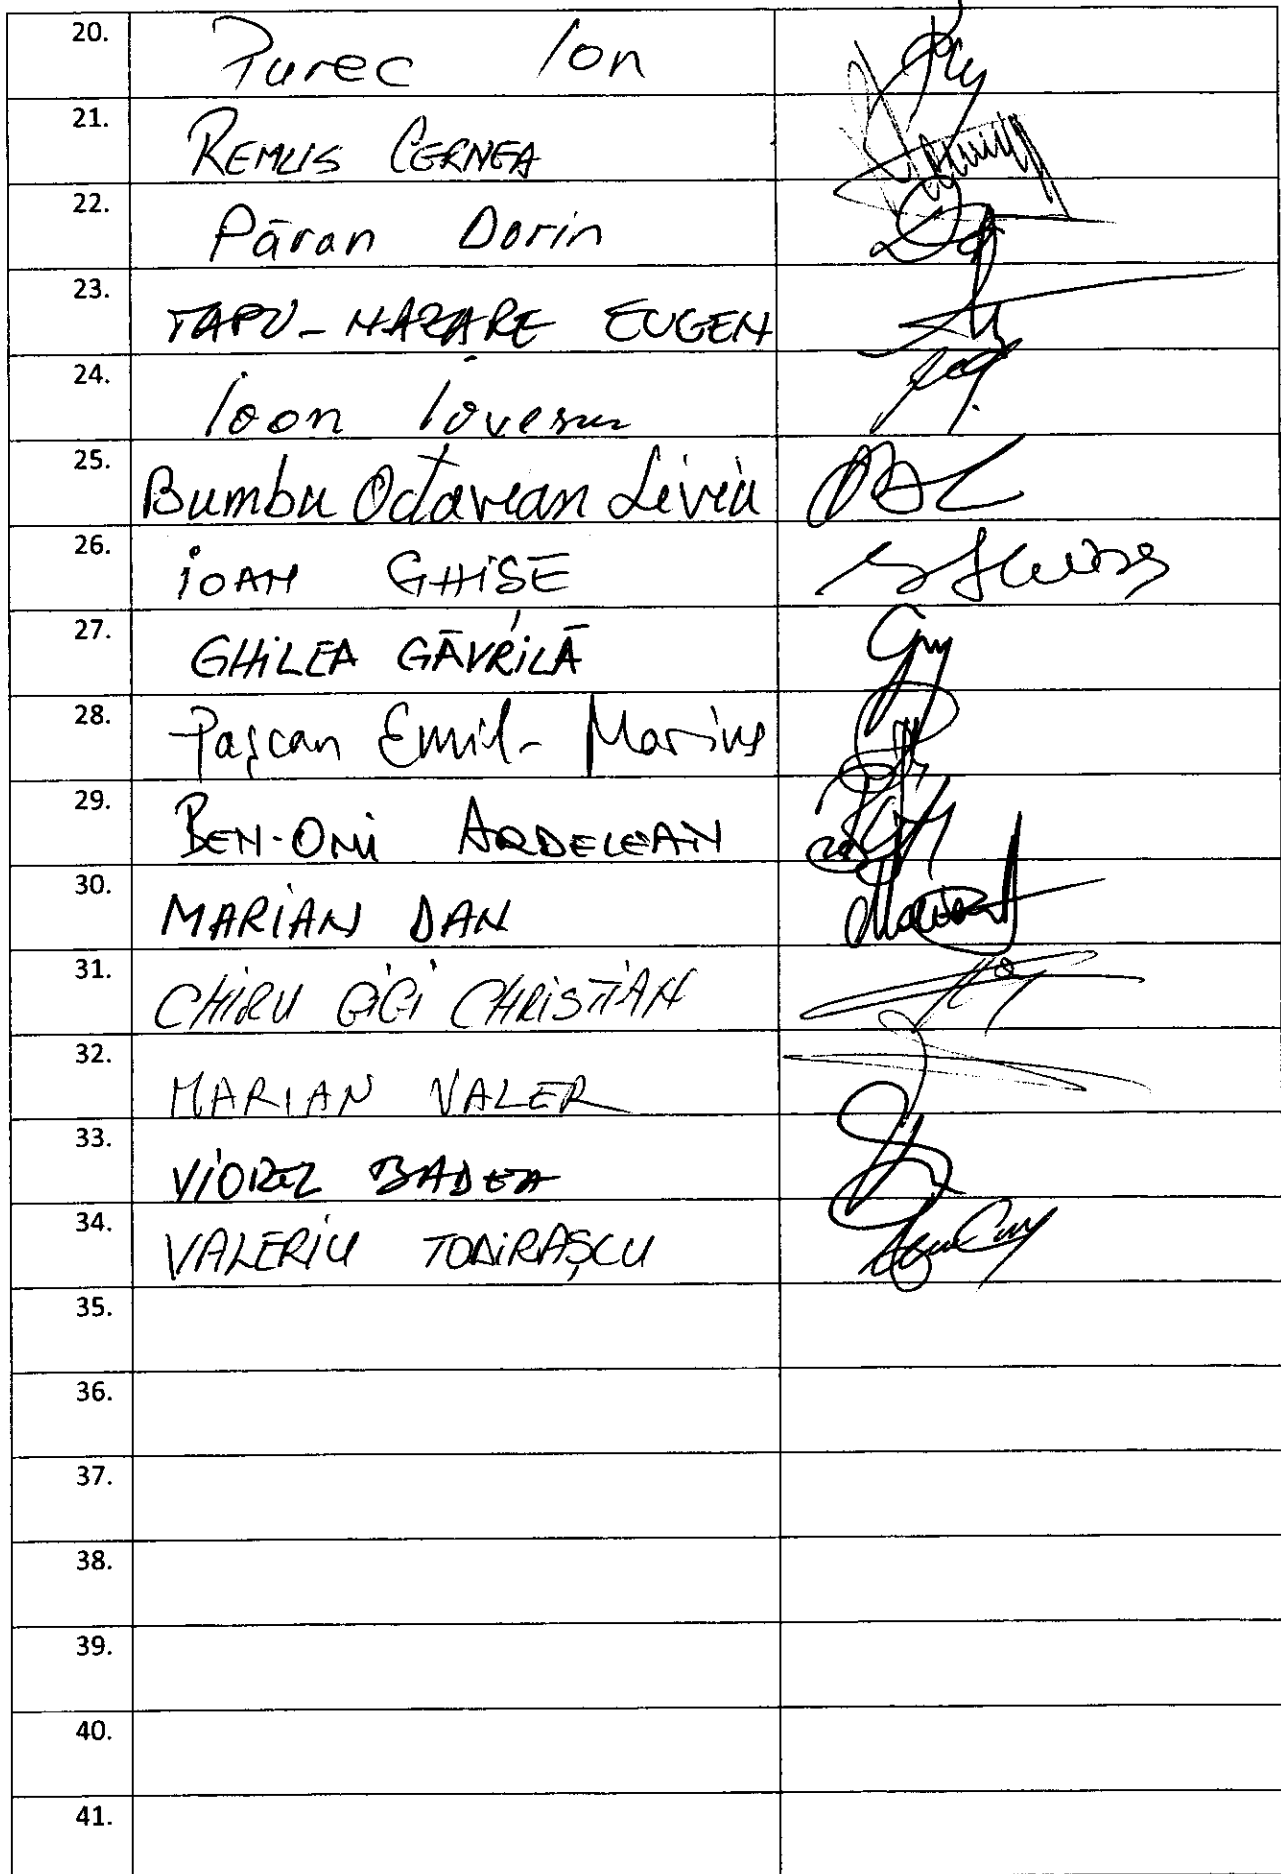 20. Purec Ion
21. REMUS CERNEA
22. Păran Dorin
23. TAPU-NAZARE EUGEN
24. Ioan Iovescu
25. Bumbu Octavian Liviu
26. IOAN GHIȘE
27. GHILEA GĂVRILĂ
28. Pașcan Emil-Marius
29. BEN-ONI ARDELEAN
30. MARIAN DAN
31. CHIRU GIGI CHRISTIAN
32. MARIAN VALER
33. VIOREL BADEA
34. VALERIU TODIRAȘCU
35.
36.
37.
38.
39.
40.
41.